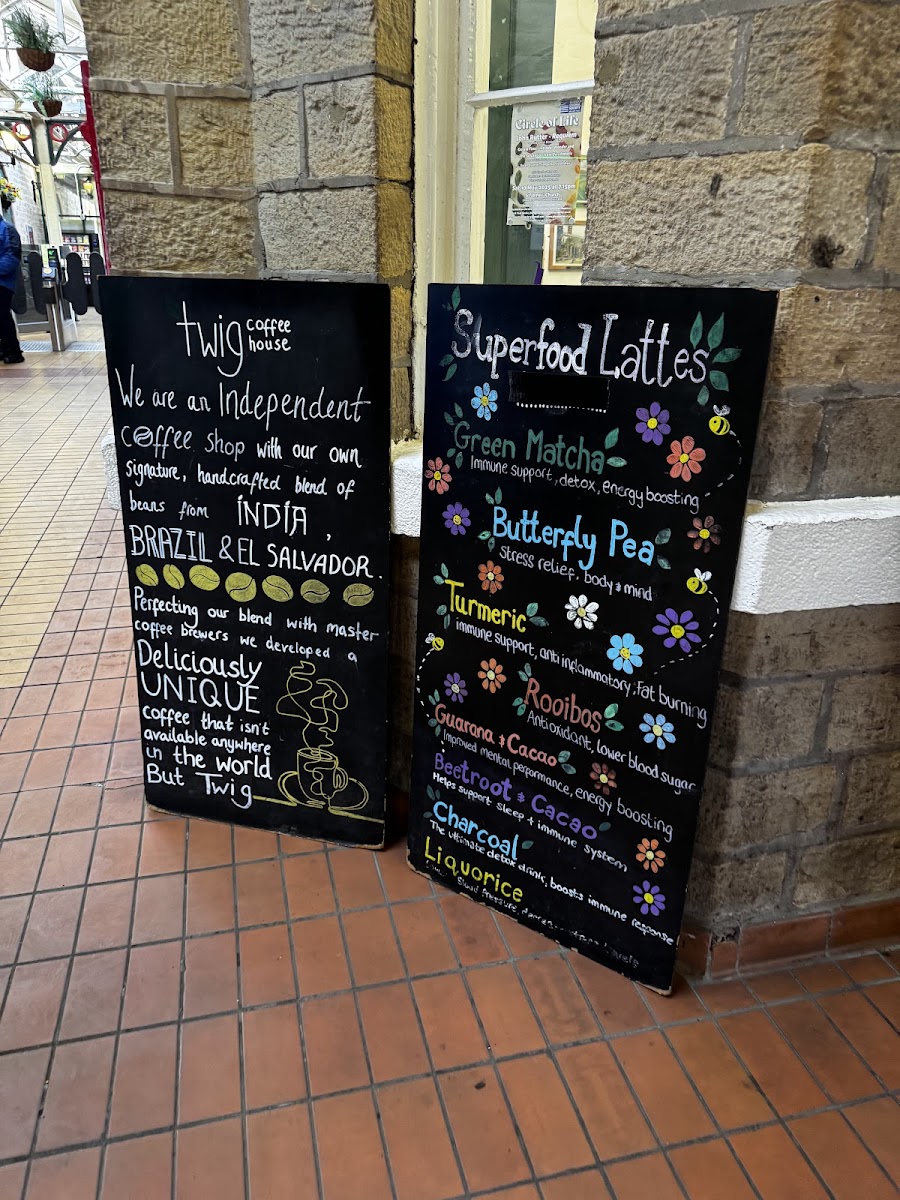 twig coffee house
We are an Independent
coffee shop with our own
signature, handcrafted blend of
beans from INDIA,
BRAZIL & EL SALVADOR.
Perfecting our blend with master
coffee brewers we developed a
Deliciously
UNIQUE
coffee that isn't
available anywhere
in the world
But Twig
Circle of Life
Rutter - Requiem
Superfood Lattes
Green Matcha
Immune support, detox, energy boosting
Butterfly Pea
Stress relief, body & mind
Turmeric
immune support, anti inflammatory, Fat burning
Rooibos
Antioxidant, lower blood sugar
Guarana & Cacao
Improved mental performance, energy boosting
Beetroot & Cacao
Helps support sleep + immune system
Charcoal
The ultimate detox drink, boosts immune response
Liquorice
blood pressure,